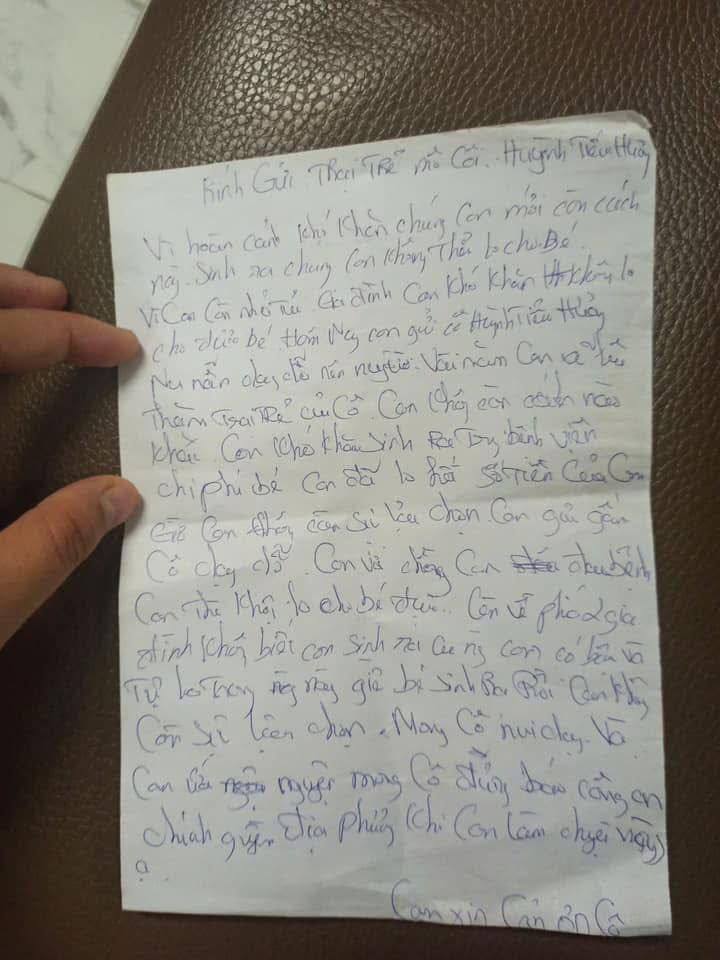 Kính Gửi Trại Trẻ mồ Côi. Huỳnh Tiểu Hương
Vì hoàn cảnh khó khăn chúng Con mới còn cách
này. Sinh ra chúng Con không Thể lo cho Bé.
Vì Con Còn nhỏ Gia đình Con khó khăn không lo
cho được bé Hôm Nay con gửi cô Huỳnh Tiểu Hương
dạy dỗ nên người. Vài năm Con về
Thăm Trại Trẻ của Cô. Con không còn cách nào
khác. Con khó khăn sinh bệnh viện
chi phí bé Con đã lo hết số tiền Của Con
Giờ Con không còn sự lựa chọn. Con gửi gắm
Cô dạy dỗ. Con và chồng Con đều bệnh
Con lo cho bé được. Còn về phía 2 gia
đình không biết con sinh
Tự lo trong này giờ bé sinh Ra Rồi Con không
Còn sự lựa chọn. Mong Cô nuôi dạy. Và
Con nguyện mong Cô đừng báo công an
chính quyền địa phương khi Con làm chuyện này
ạ
Con xin Cản ơn Cô